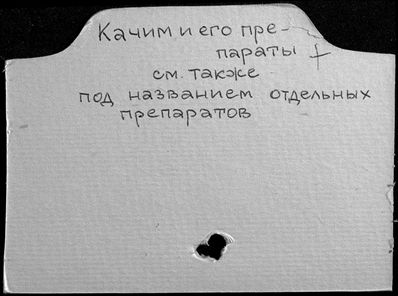 Качим и его пре-
параты +
см. также
под названием отдельных
препаратов